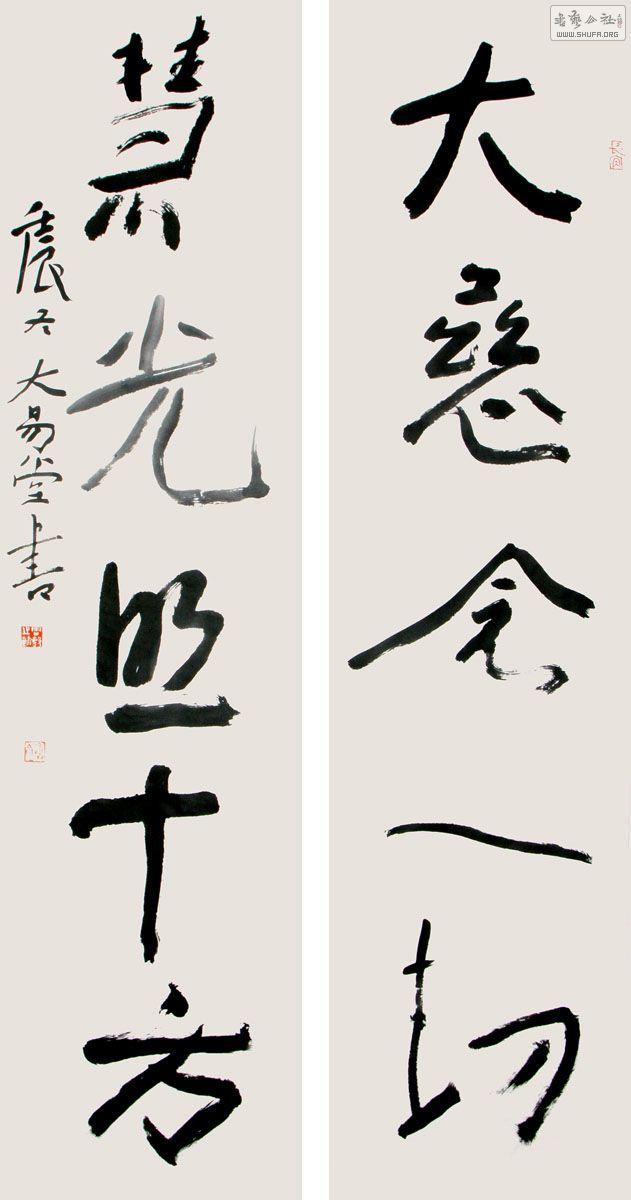 大慈念一切
慧光照十方
大易堂书
WWW.SHUFA.ORG